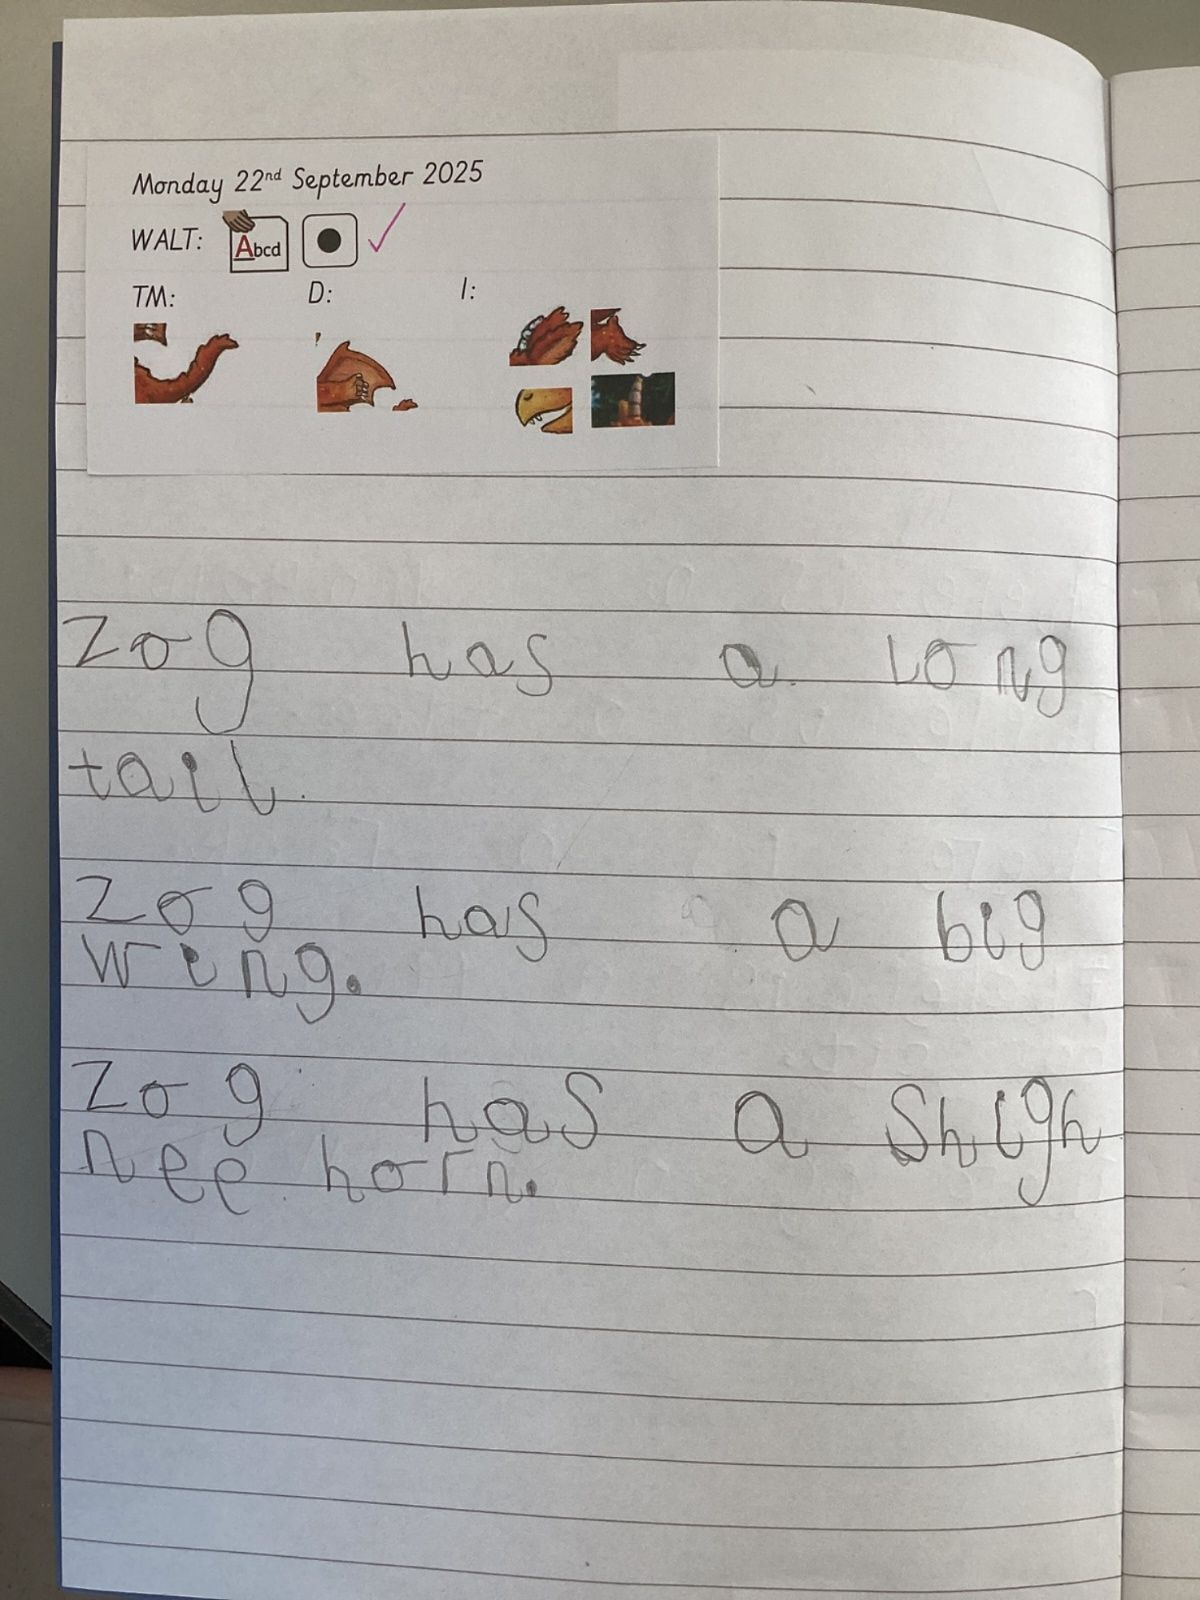 Monday 22nd September 2025
WALT: Abcd
TM: D: I:
Zog has a long
tail.
Zog has a big
wing.
Zog has a Shigh
nee horn.